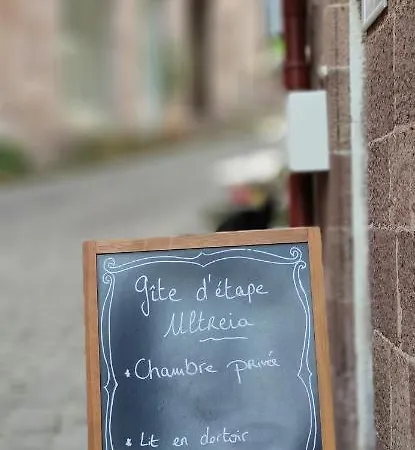 Gîte d'étape
Ultreia
* Chambre privée
* Lit en dortoir